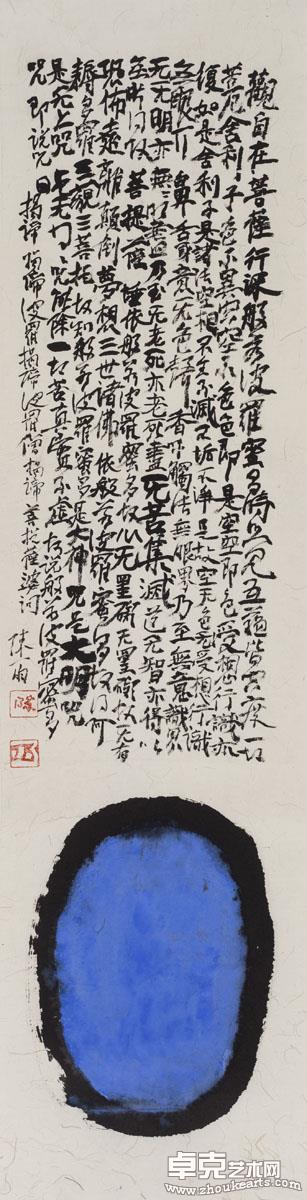 觀自在菩薩行深般若波羅蜜多時照見五蘊皆空度一切
苦厄舍利子色不異空空不異色色即是空空即色受想行識亦
復如是舍利子是諸法空相不生不滅不垢不淨是故空无色无受想行識
无眼耳鼻舌身意无色聲香味觸法無眼界乃至無意識界
无无明亦無无明盡乃至无老死亦老死盡无苦集滅道无智亦得以
無所得故菩提薩埵依般若波羅蜜多故心无罣礙无罣礙故无有
恐怖遠離顛倒夢想三世諸佛依般若波羅蜜多故得阿
耨多羅三藐三菩提故知般若波羅蜜多是大神咒是大明咒
是无上咒是无等等咒能除一切苦真實不虛故說般若波羅蜜多
咒即說咒曰揭諦揭諦波羅揭諦波羅僧揭諦菩提薩婆訶
陈雨
卓克艺术网
www.zhoukearts.com